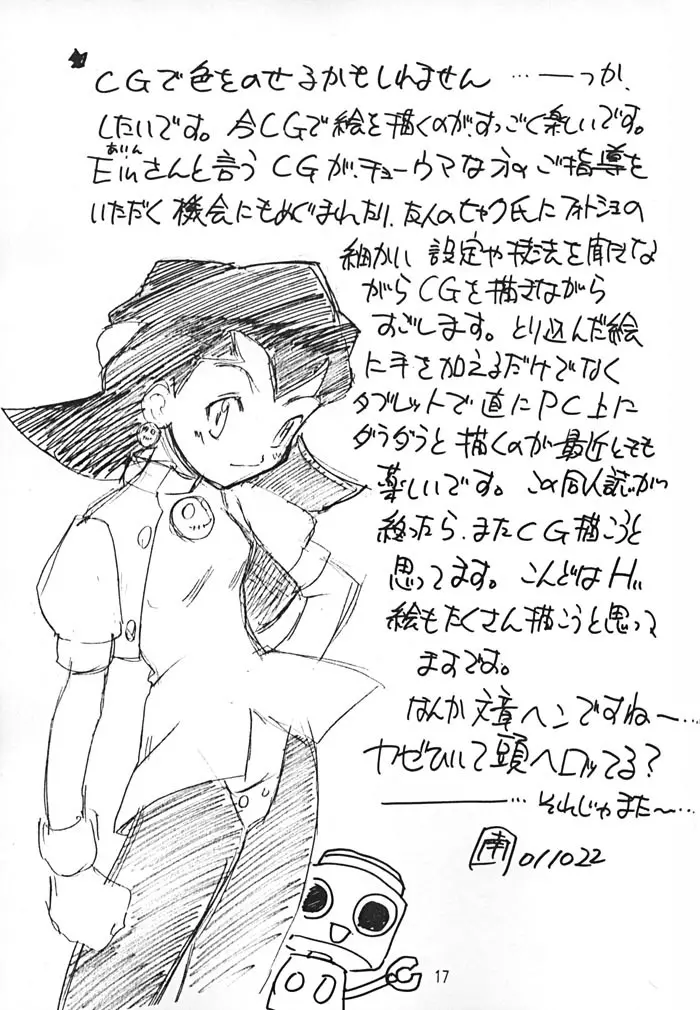 CGで色をのせるかもしれません …―っか、
したいです。今CGで絵を描くのが、すっごく楽しいです。
あいん
Einさんと言うCGが、チョーウマな方のご指導を
いただく機会にもめぐまれたり、友人のセャク氏にフォトショの
細かい設定や技法を聞きな
がらCGを描きながら
すごします。とり込んだ絵
に手を加えるだけでなく
タブレットで直にPC上に
ダラダラと描くのが最近とても
楽しいです。この同人誌が
終ったら、またCG描こうと
思ってます。こんどはHぃ
絵もたくさん描こうと思って
ますです。
なんか文章ヘンですねー…
カゼひいて頭ヘロってる?
―…それじゃまた〜…
南 011022
17